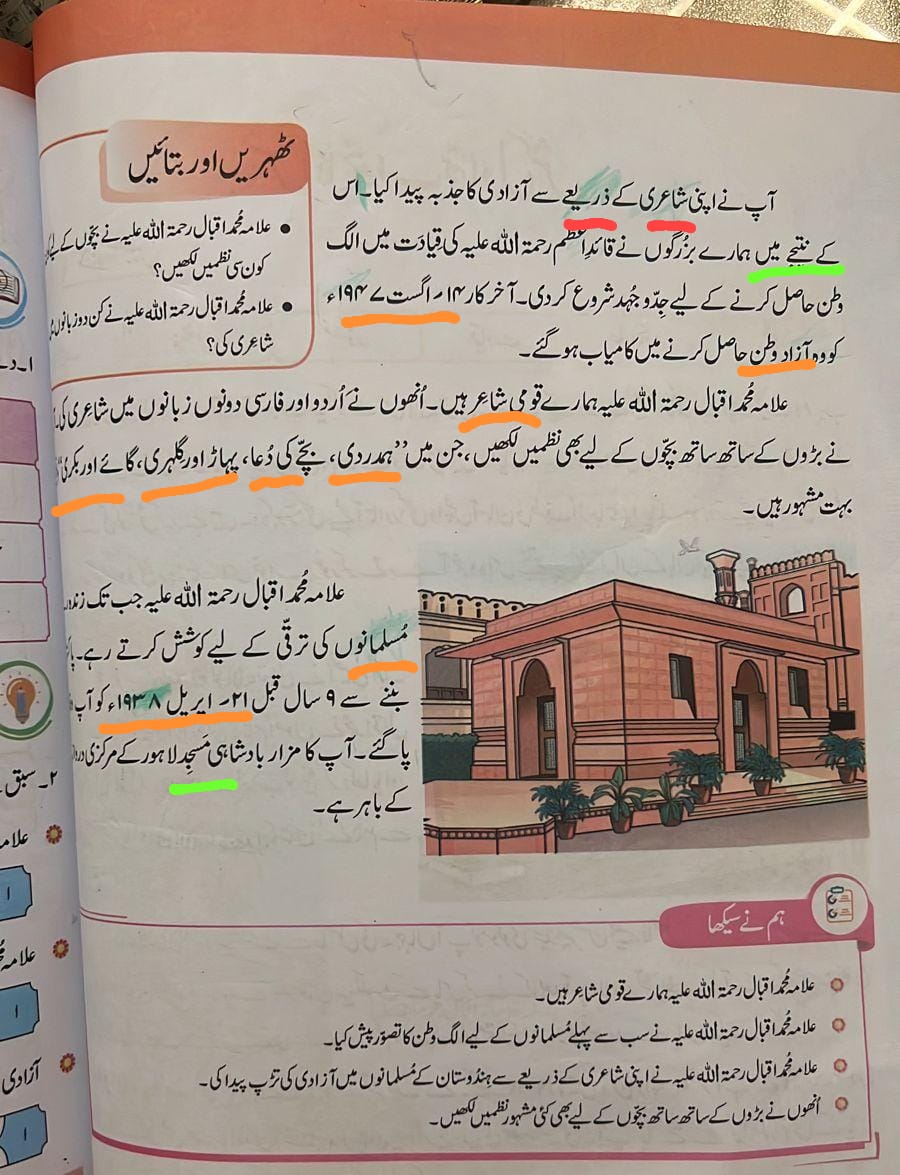 ٹھہریں اور بتائیں
علامہ مُحمد اقبال رحمۃ اللہ علیہ نے بچّوں کے لیے
کون سی نظمیں لکھیں؟
علامہ مُحمد اقبال رحمۃ اللہ علیہ نے کن دو زبانوں
شاعِری کی؟
آپ نے اپنی شاعری کے ذریعے سے آزادی کا جذبہ پیدا کیا۔ اس
کے نتیجے میں ہمارے بزُرگوں نے قائدِاعظم رحمۃ اللہ علیہ کی قیادَت میں الگ
وطن حاصل کرنے کے لیے جِدّوجُہد شروع کر دی۔ آخر کار ۱۴؍ اگست ۱۹۴۷ء
کو وہ آزاد وطن حاصل کرنے میں کامیاب ہو گئے۔
علامہ مُحمد اقبال رحمۃ اللہ علیہ ہمارے قومی شاعر ہیں۔ اُنھوں نے اُردو اور فارسی دونوں زبانوں میں شاعری کی۔
نے بڑوں کے ساتھ ساتھ بچّوں کے لیے بھی نظمیں لکھیں، جن میں ’’ہمدردی، بچّے کی دُعا، پہاڑ اور گلہری، گائے اور بکری‘‘
بہت مشہور ہیں۔
علامہ مُحمد اقبال رحمۃ اللہ علیہ جب تک زندہ
مُسلمانوں کی ترقّی کے لیے کوشش کرتے رہے۔
بننے سے ۹ سال قبل ۲۱؍ اپریل ۱۹۳۸ء کو آپ
پا گئے۔ آپ کا مزار بادشاہی مَسجِد لاہور کے مرکزی
کے باہر ہے۔
ہم نے سیکھا
علامہ مُحمد اقبال رحمۃ اللہ علیہ ہمارے قومی شاعر ہیں۔
علامہ مُحمد اقبال رحمۃ اللہ علیہ نے سب سے پہلے مُسلمانوں کے لیے الگ وطن کا تصوّر پیش کیا۔
علامہ مُحمد اقبال رحمۃ اللہ علیہ نے اپنی شاعری کے ذریعے سے ہندُوستان کے مُسلمانوں میں آزادی کی تڑپ پیدا کی۔
اُنھوں نے بڑوں کے ساتھ ساتھ بچّوں کے لیے بھی کئی مشہور نظمیں لکھیں۔
۲۔ سبق
آزادی